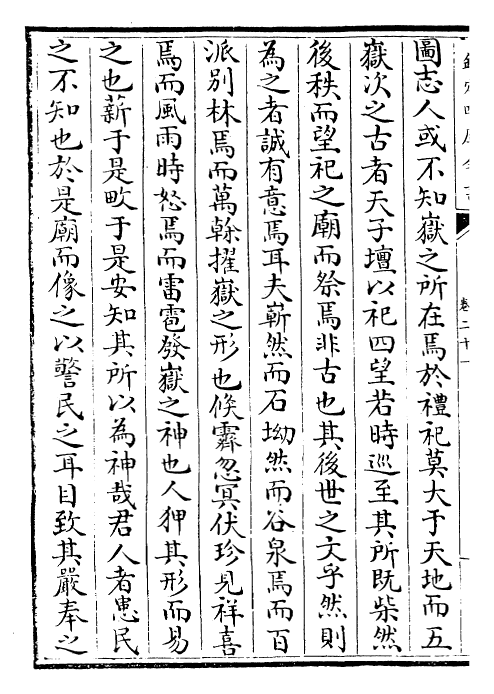 圖志人或不知嶽之所在焉於禮祀莫大于天地而五
嶽次之古者天子壇以祀四望若時巡至其所既柴然
後秩而望祀之廟而祭焉非古也其後世之文乎然則
為之者誠有意焉耳夫嶄然而石坳然而谷泉焉而百
派別林焉而萬榦擢嶽之形也倏霽忽冥伏珍見祥喜
焉而風雨時怒焉而雷雹發嶽之神也人狎其形而易
之也薪于是畋于是安知其所以為神哉君人者患民
之不知也於是廟而像之以警民之耳目致其嚴奉之
卷二十一